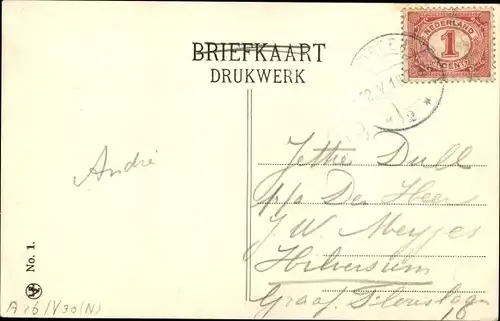 BRIEFKAART
DRUKWERK
NEDERLAND
1
CENT
André
Jettie Dull
p/a Den Heer
J. W. Meyjes
Hilversum
Graaf Florislaan
16
No. 1.
A 16/V30(N)